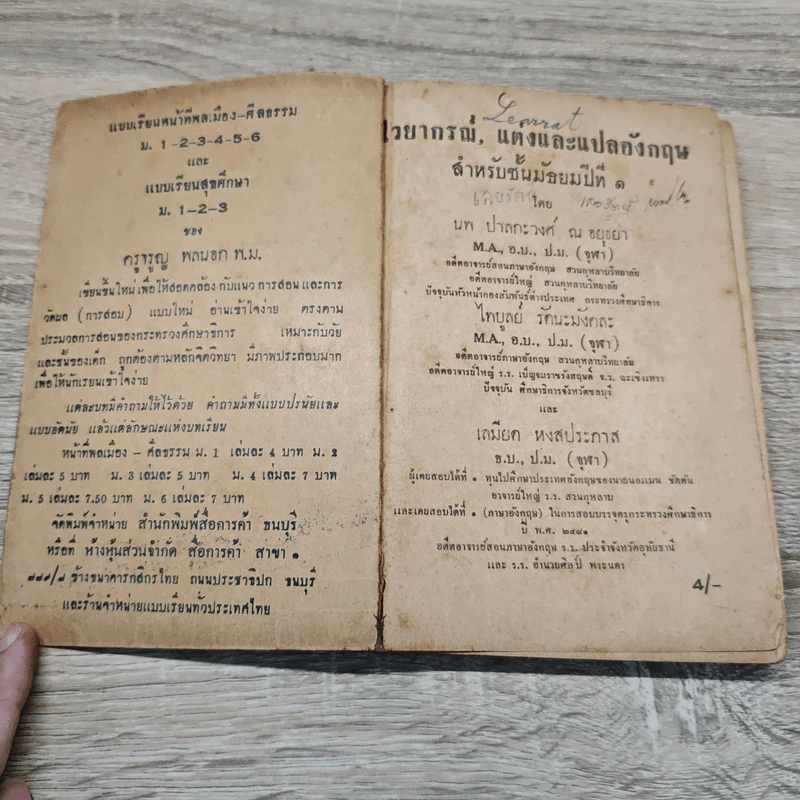 แบบเรียนหน้าที่พลเมือง-ศีลธรรม
ม. 1-2-3-4-5-6
และ
แบบเรียนสุขศึกษา
ม. 1-2-3
ของ
ครูจรูญ พลนอก พ.ม.
เขียนขึ้นใหม่ เพื่อให้สอดคล้อง กับแนว การสอน และการ
วัดผล (การสอบ) แบบใหม่ อ่านเข้าใจง่าย ตรงตาม
ประมวลการสอนของกระทรวงศึกษาธิการ เหมาะกับวัย
และชั้นของเด็ก ถูกต้องตามหลักจิตวิทยา มีภาพประกอบมาก
เพื่อให้นักเรียนเข้าใจง่าย
แต่ละบทมีคำถามให้ไว้ด้วย คำถามมีทั้งแบบปรนัยและ
แบบอัตนัย แล้วแต่ลักษณะแห่งบทเรียน
หน้าที่พลเมือง - ศีลธรรม ม. 1 เล่มละ 4 บาท ม. 2
เล่มละ 5 บาท ม. 3 เล่มละ 5 บาท ม. 4 เล่มละ 7 บาท
ม. 5 เล่มละ 7.50 บาท ม. 6 เล่มละ 7 บาท
จัดพิมพ์จำหน่าย สำนักพิมพ์สื่อการค้า ธนบุรี
หรือที่ ห้างหุ้นส่วนจำกัด สื่อการค้า สาขา ๑
ข้างธนาคารกสิกรไทย ถนนประชาธิปก ธนบุรี
และร้านจำหน่ายแบบเรียนทั่วประเทศไทย
ไวยากรณ์, แต่งและแปลอังกฤษ
สำหรับชั้นมัธยมปีที่ ๑
โดย
นพ ปาลกะวงศ์ ณ อยุธยา
M.A., อ.บ., ป.ม. (จุฬา)
อดีตอาจารย์สอนภาษาอังกฤษ สวนกุหลาบวิทยาลัย
อดีตอาจารย์ใหญ่ สวนกุหลาบวิทยาลัย
ปัจจุบันหัวหน้ากองสัมพันธ์ต่างประเทศ กระทรวงศึกษาธิการ
ไพบูลย์ รัตนะมังคละ
M.A., อ.บ., ป.ม. (จุฬา)
อดีตอาจารย์ภาษาอังกฤษ สวนกุหลาบวิทยาลัย
อดีตอาจารย์ใหญ่ ร.ร. เบ็ญจมราชรังสฤษดิ์ จ.ว. ฉะเชิงเทรา
ปัจจุบัน ศึกษาธิการจังหวัดชลบุรี
และ
เสมียด หงสประภาส
ธ.บ., ป.ม. (จุฬา)
ผู้เคยสอบได้ที่ ๑ ทุนไปศึกษาประเทศอังกฤษของนายนอแมน ซัตตัน
อาจารย์ใหญ่ ร.ร. สวนกุหลาบ
และเคยสอบได้ที่ ๑ (ภาษาอังกฤษ) ในการสอบบรรจุครูกระทรวงศึกษาธิการ
ปี พ.ศ. ๒๔๘๑
อดีตอาจารย์สอนภาษาอังกฤษ ร.ร. ประจำจังหวัดอุทัยธานี
และ ร.ร. อำนวยศิลป์ พระนคร
4/-